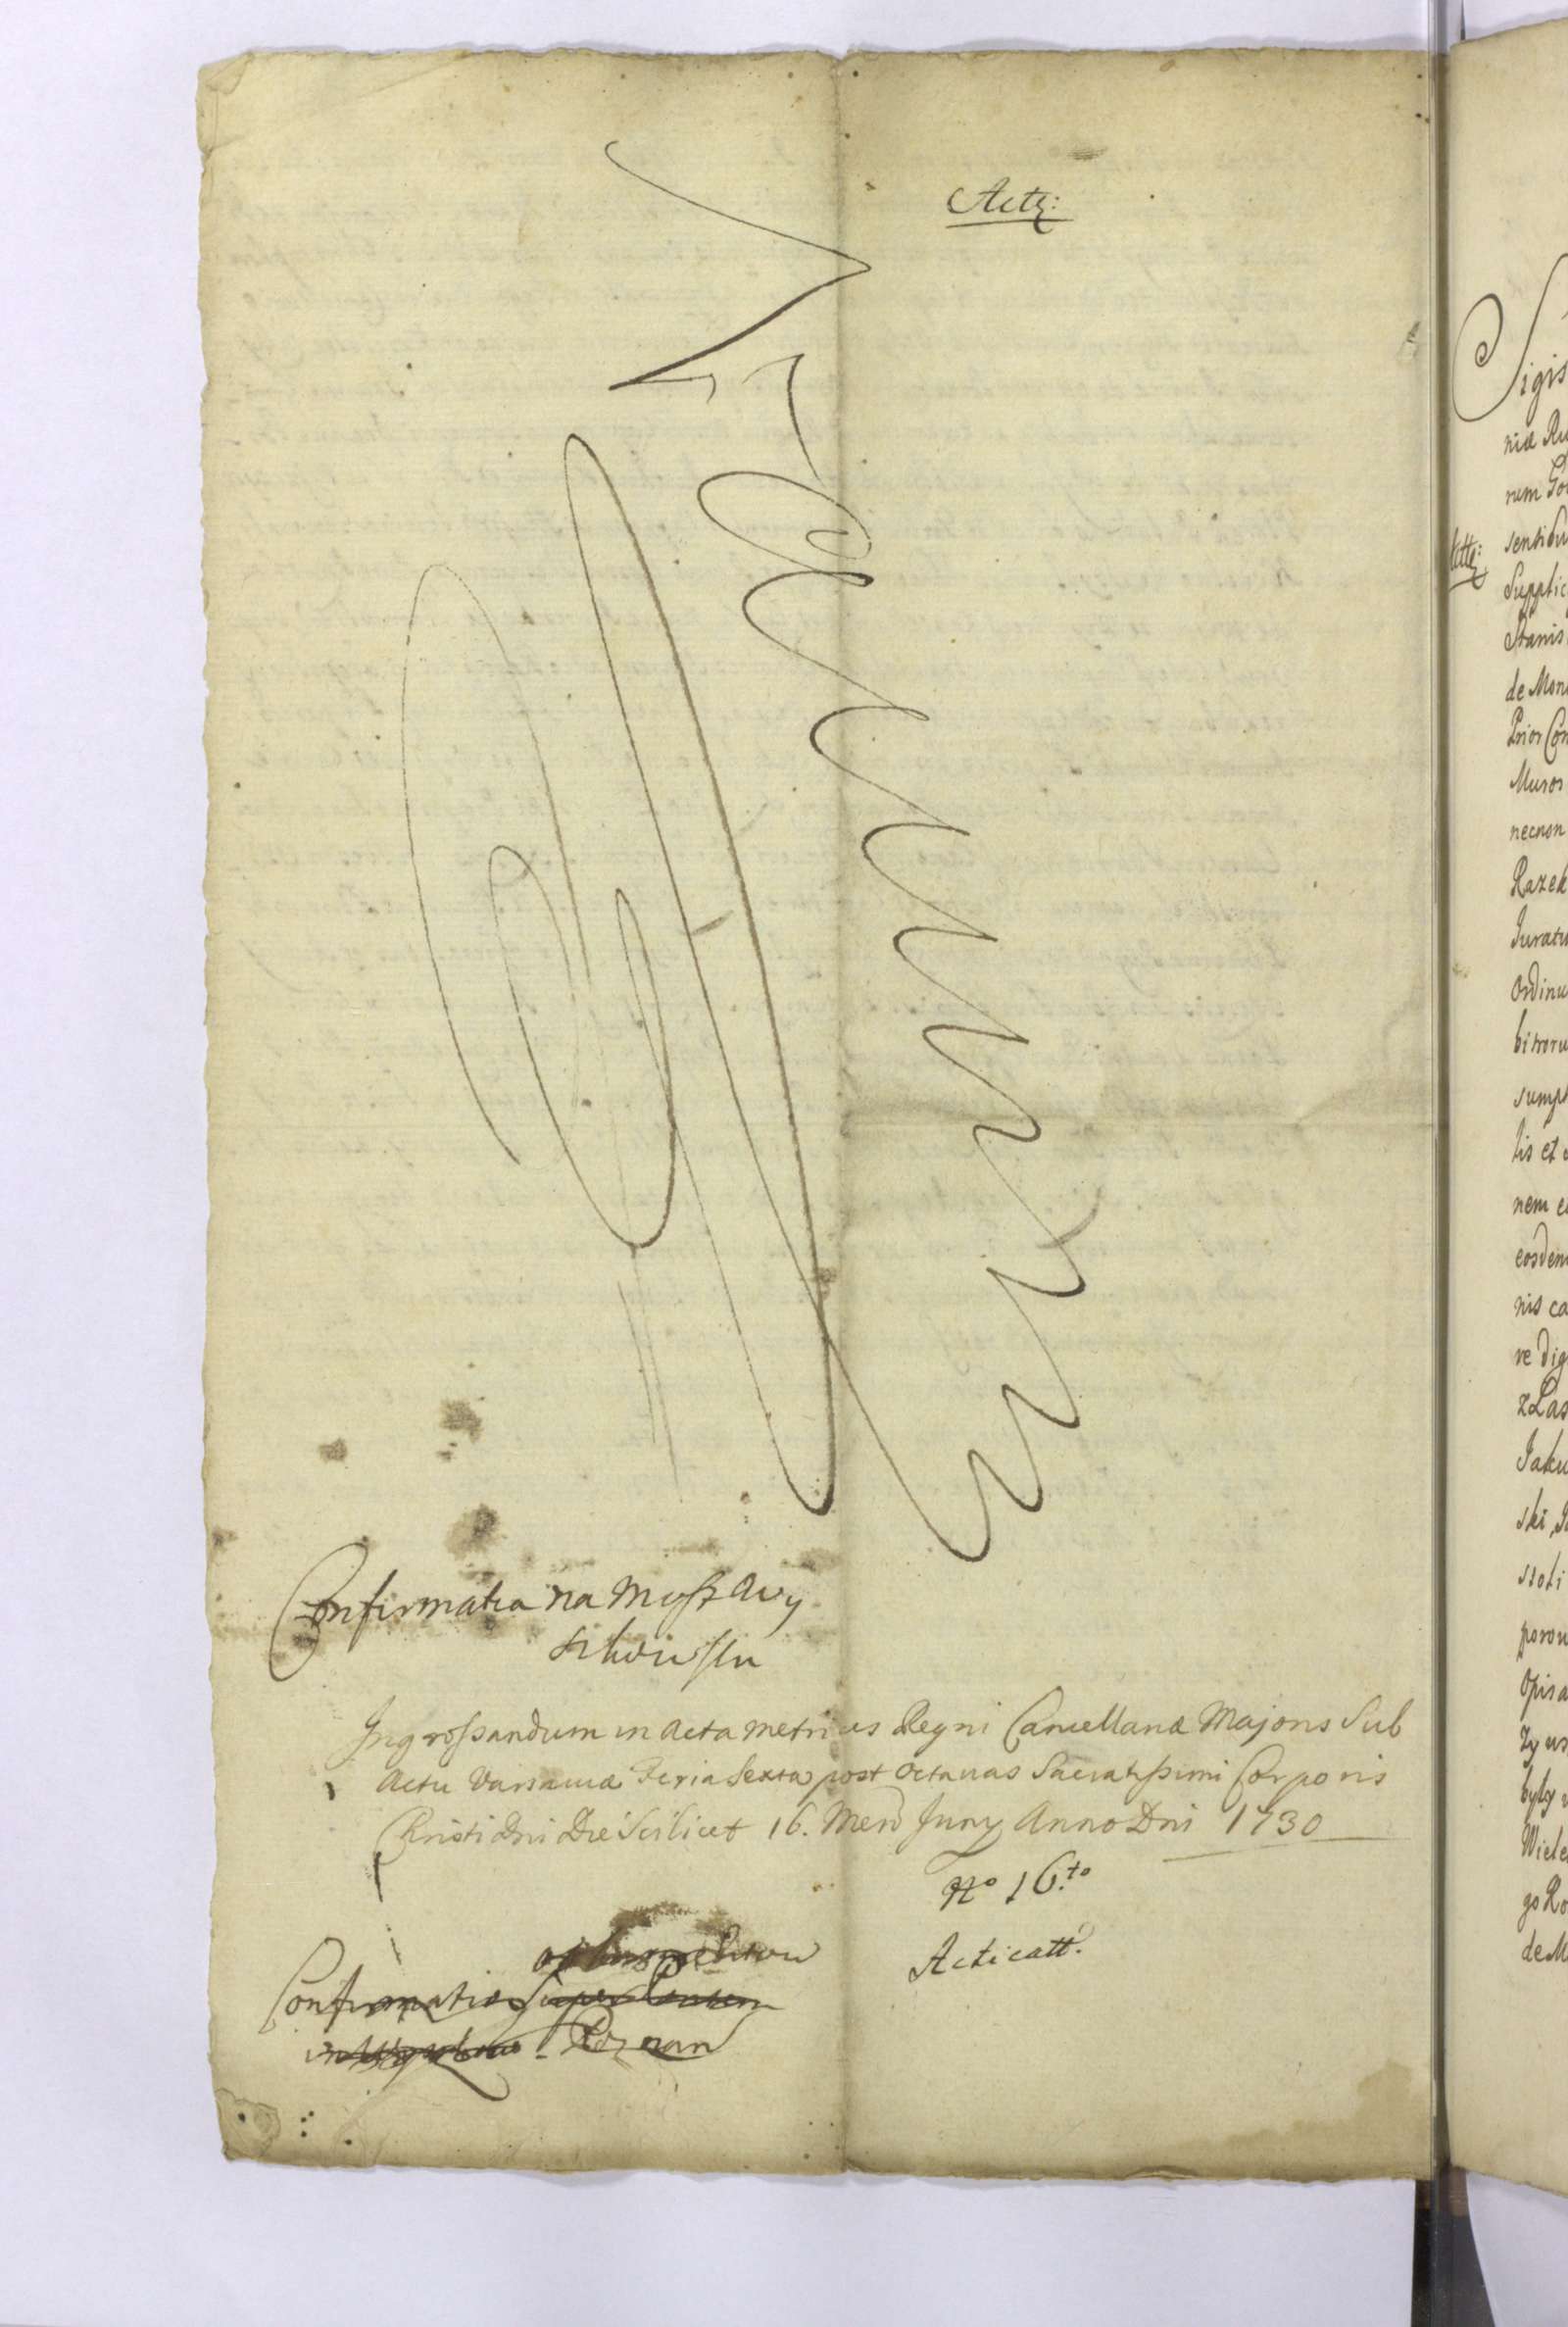 Actt:
Confirmatia na
Ingrossandum in Acta metrices Regni Cancellariæ Majoris Sub
Actu Varsaviæ Feria Sexta post octavas Sacratissimi Corporis
Christi Dni Die Scilicet 16. Mens Juny Anno Dni 1730
No 16.to
Acticatt.
Confirmatio Super
Poznan
Sigis
niæ Ru
rum Go
sentibu
Actt:
Supplic
Stanis
de Mon
Prior Con
Muros
necnon
Razek
Juratu
Ordinu
bitroru
sumpt
lis et
nem e
eosdem
nis ca
re dig
z Las
Jaku
ski, J
ssoti
porou
Opisa
Zy us
byly
Wiele
go Ro
de M